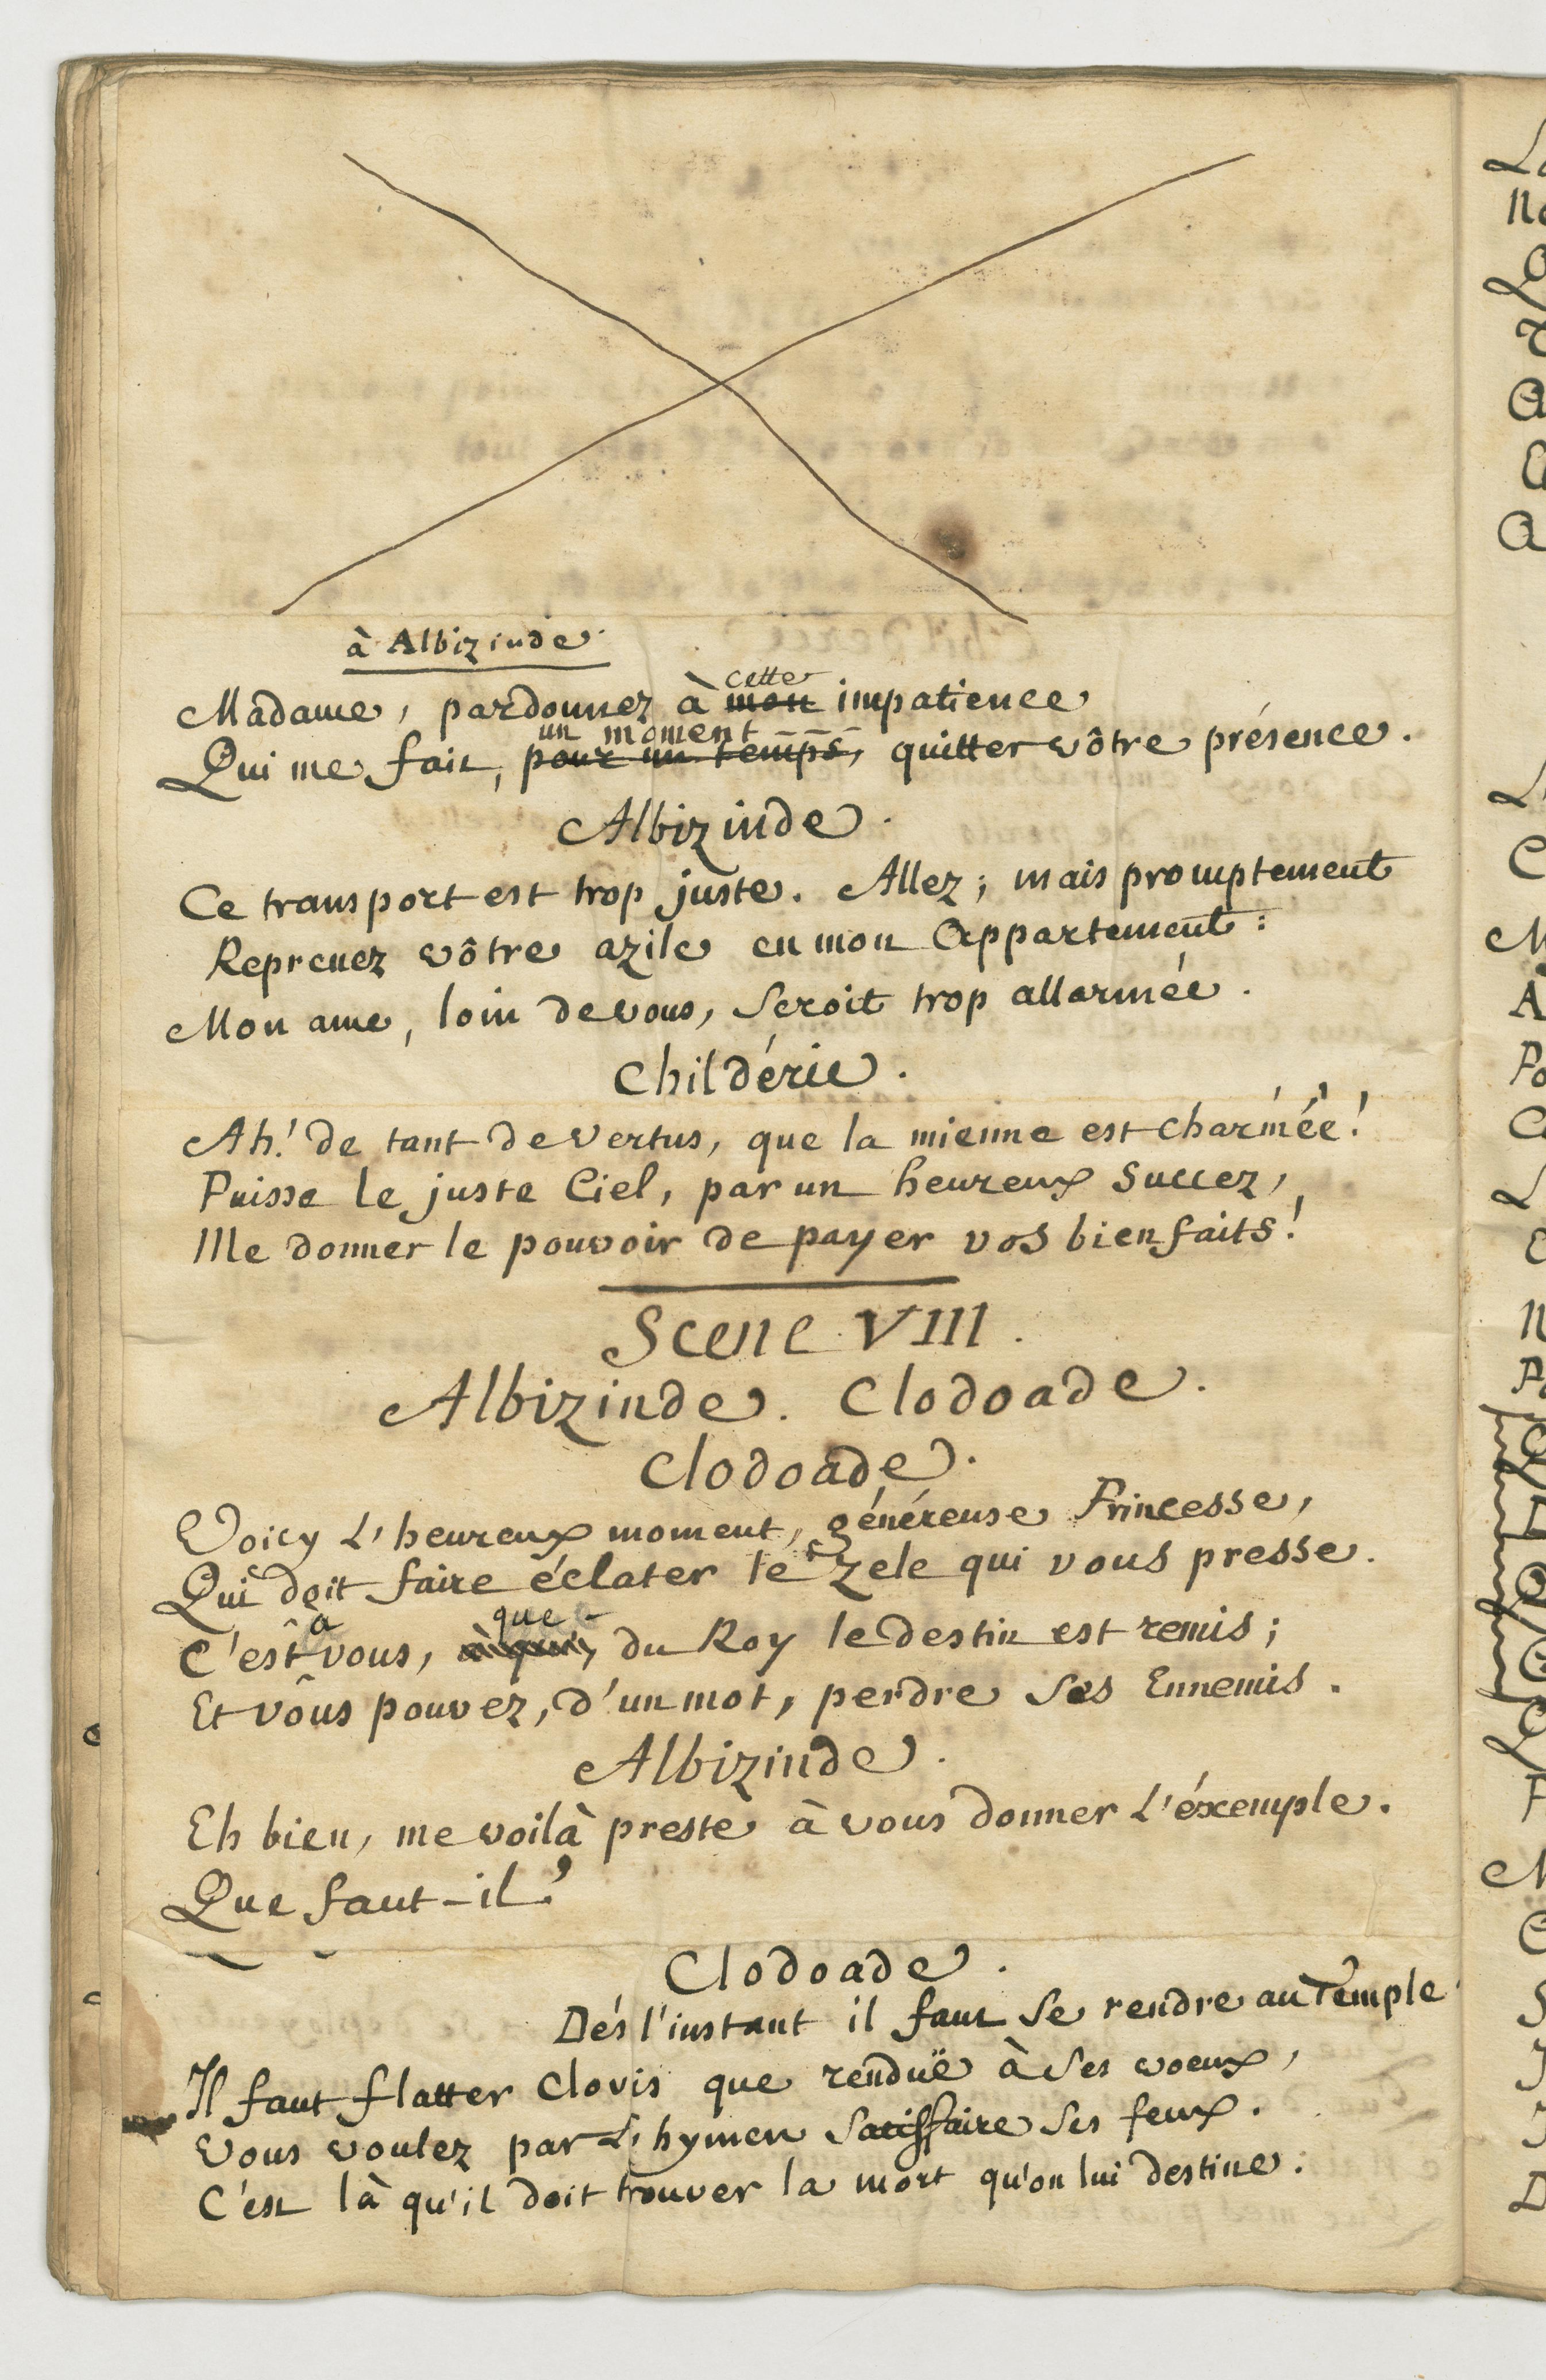 à Albizinde.
cette
Madame, pardonnez à mon impatience
un moment
Qui me fait, pour un temps, quitter vôtre présence.
Albizinde.
Ce transport est trop juste. Allez; mais promptement
Reprenez vôtre azile en mon Appartement:
Mon ame, loin de vous, seroit trop allarmée.
Childéric.
Ah! de tant de vertus, que la mienne est charmée!
Puisse le juste Ciel, par un heureux succez,
Me donner le pouvoir de payer vos bienfaits!
Scene VIII.
Albizinde. Clodoade.
Clodoade.
Voicy l'heureux moment, généreuse Princesse,
Qui doit faire éclater le zele qui vous presse.
à que
C'est vous, à qui, du Roy le destin est remis;
Et vous pouvez, d'un mot, perdre ses Ennemis.
Albizinde.
Eh bien, me voilà preste à vous donner l'éxemple.
Que faut-il?
Clodoade.
Dés l'instant il faut se rendre au Temple
Il faut flatter Clovis que renduë à ses voeux,
Vous voulez par l'hymen satisfaire ses feux.
C'est là qu'il doit trouver la mort qu'on lui destine.